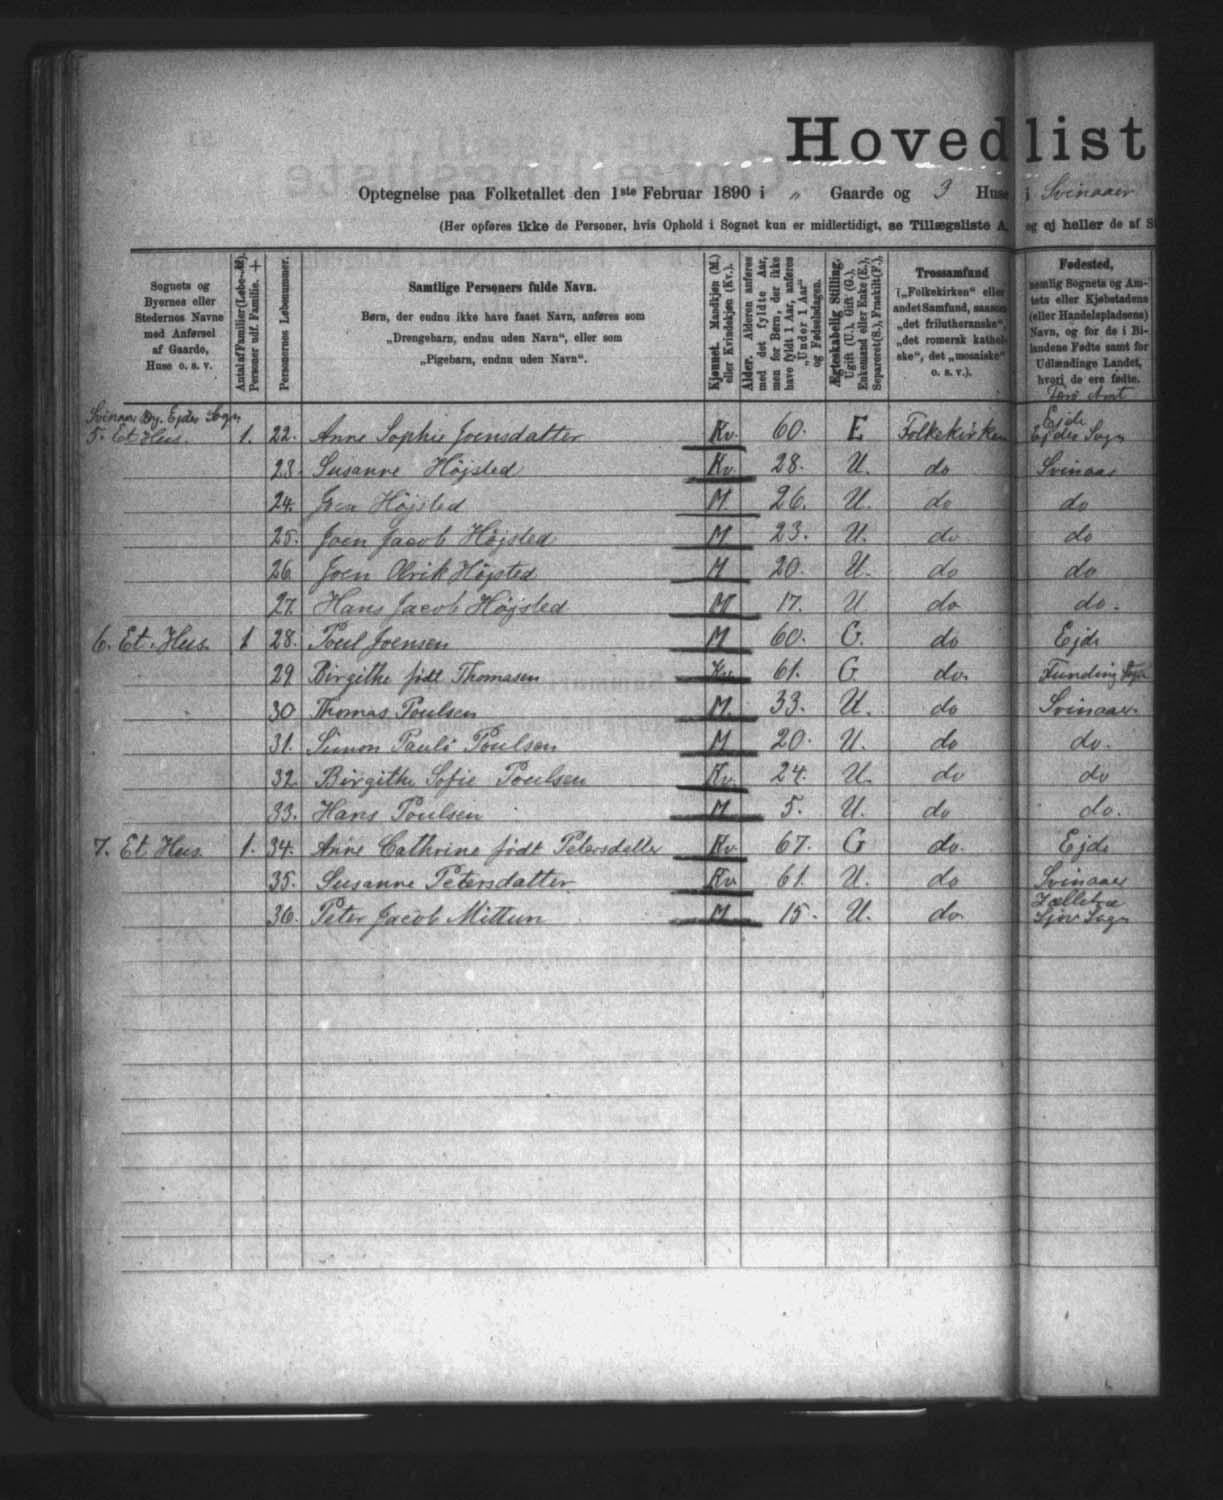 Hovedlist
Optegnelse paa Folketallet den 1ste Februar 1890 i " Gaarde og 3 Huse i Svinaaer
(Her opføres ikke de Personer, hvis Ophold i Sognet kun er midlertidigt, se Tillægsliste A, og ej heller de af S
Sognets og Byernes eller Stedernes Navne med Anførsel af Gaarde, Huse o. s. v.
Antal af Familier (Løbe-№). Personer udf. Familie. +
Personernes Løbenummer.
Samtlige Personers fulde Navn.
Børn, der endnu ikke have faaet Navn, anføres som
„Drengebarn, endnu uden Navn“, eller som
„Pigebarn, endnu uden Navn“.
Kjønnet. Mandkjøn (M.) eller Kvindekjøn (Kv.).
Alder. Alderen anføres med det fyldte Aar, men for Børn, der ikke have fyldt 1 Aar, anføres „Under 1 Aar“ og Fødselsdagen.
Ægteskabelig Stilling. Ugift (U.), Gift (G.), Enkemand eller Enke (E.), Separeret (S.), Fraskilt (F.).
Trossamfund
(„Folkekirken“ eller andet Samfund, saasom „det frilutheranske“, „det romersk kathol-ske“, det „mosaiske“ o. s. v.).
Fødested,
nemlig Sognets og Am-tets eller Kjøbstadens (eller Handelspladsens) Navn, og for de i Bi-landene Fødte samt for Udlændinge Landet, hvori de ere fødte.
Færø Amt
Svinaae By. Ejde Sogn
Ejde
5. Et Hus. 1. 22. Anne Sophie Joensdatter Kv. 60. E Folkekirken Ejdes Sogn
23. Susanne Højsted Kv. 28. U. do Svinaae
24. Joen Højsted M. 26. U. do do
25. Joen Jacob Højsted M 23. U. do do
26 Joen Olrik Højsted M 20. U. do do
27. Hans Jacob Højsted M 17. U do do.
6. Et. Hus. 1 28. Poul Joensen M 60. G. do Ejde
29 Birgithe født Thomasen Kv. 61. G do. Funding Sogn
30 Thomas Poulsen M. 33. U. do Svinaaer
31. Simon Pauli Poulsen M. 20. U. do do.
32. Birgithe Sofie Poulsen Kv. 24. U. do do
33. Hans Poulsen M 5. U. do do.
7. Et Hus. 1. 34. Anne Cathrine født Petersdatter Kv. 67. G do. Ejde
35. Susanne Petersdatter Kv 61. U. do Svinaaer
36. Peter Jacob Mittun M 15. U. do Sjov Sogn